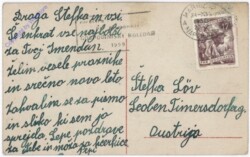 Draga Štefka in vsi
Še enkrat vse najboljše
za Tvoj imendan
Želim vesele praznike
in srečno novo leto
Zahvalim se za pismo
in sliko ki sem jo
prejela. Lepe pozdrave
za Vile in moža
Pepi
Štefka Löv
Leoben Timersdorfg.
Austrija